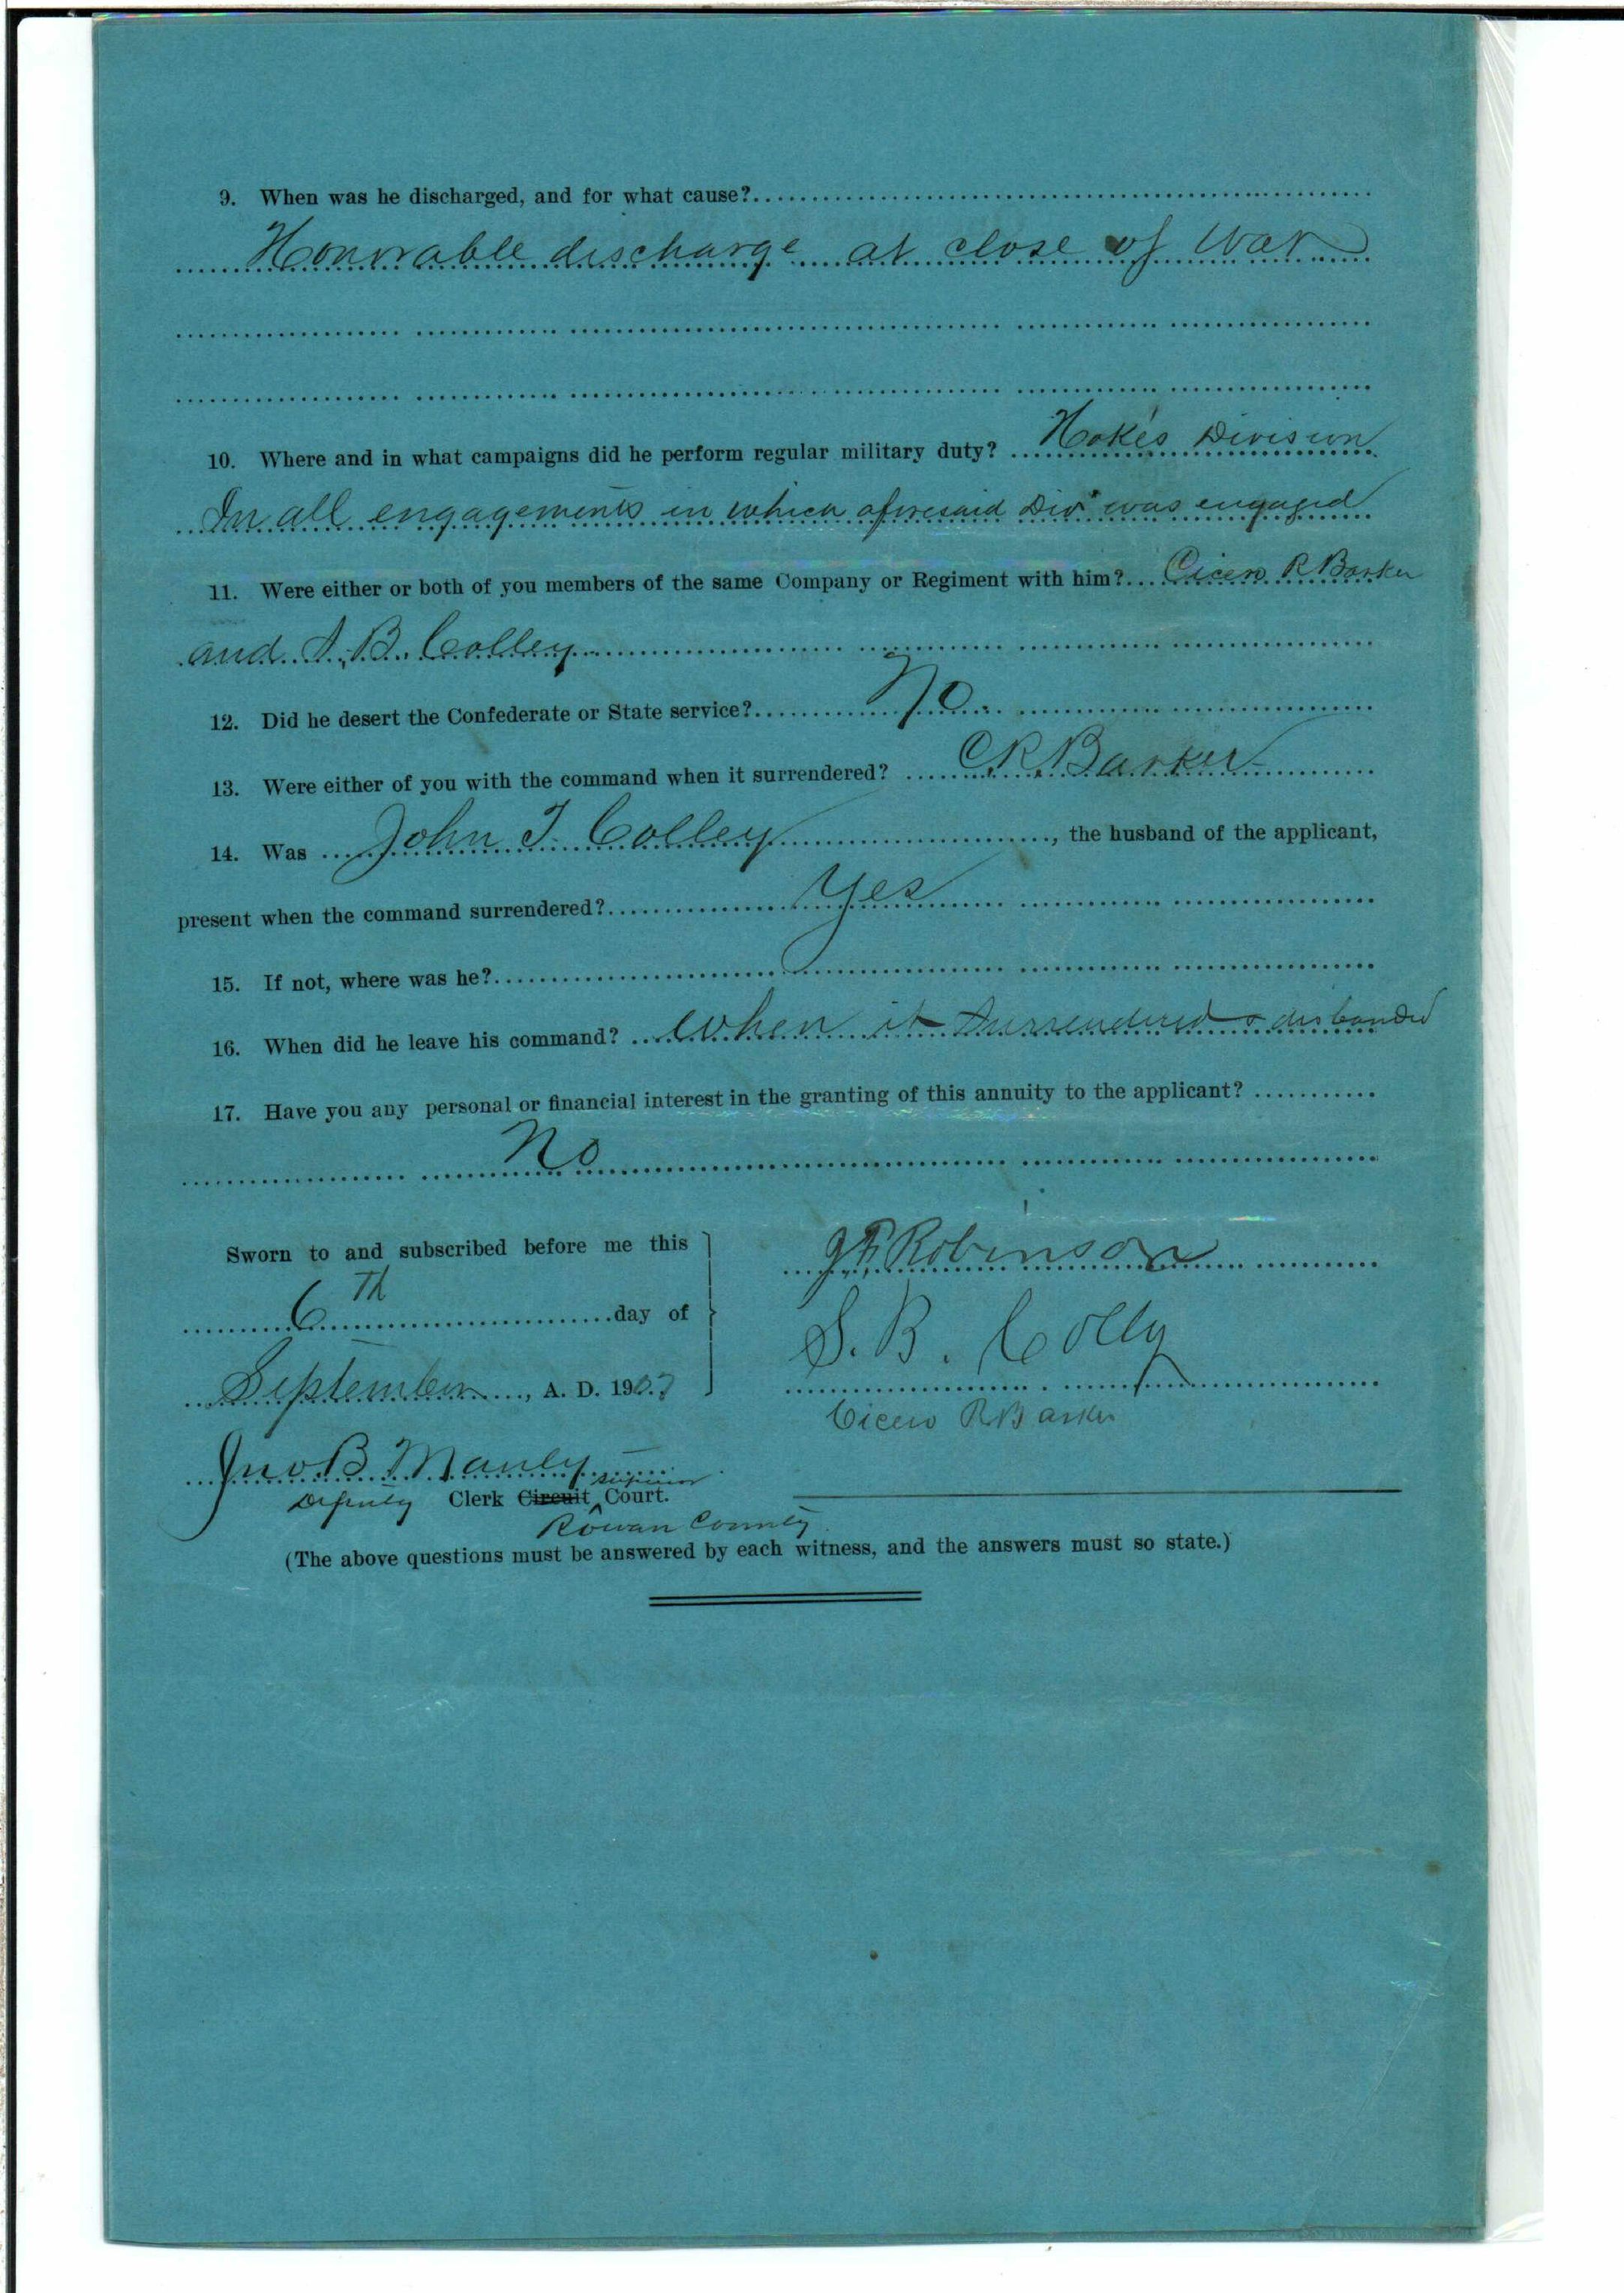 9. When was he discharged, and for what cause?
Honorable discharge at close of War
10. Where and in what campaigns did he perform regular military duty? Hoke's Division
In all engagements in which aforesaid Div was engaged
11. Were either or both of you members of the same Company or Regiment with him? Cicero R Barker
and S. B. Colley
12. Did he desert the Confederate or State service? No
13. Were either of you with the command when it surrendered? C R Barker
14. Was John T. Colley, the husband of the applicant,
present when the command surrendered? Yes
15. If not, where was he?
16. When did he leave his command? When it surrendered & disbanded
17. Have you any personal or financial interest in the granting of this annuity to the applicant?
No
Sworn to and subscribed before me this
6th day of
September, A. D. 1907
Robinson
S. B. Colly
Cicero R Barker
Jno B Manly
Deputy Clerk Circuit Superior Court.
Rowan County
(The above questions must be answered by each witness, and the answers must so state.)